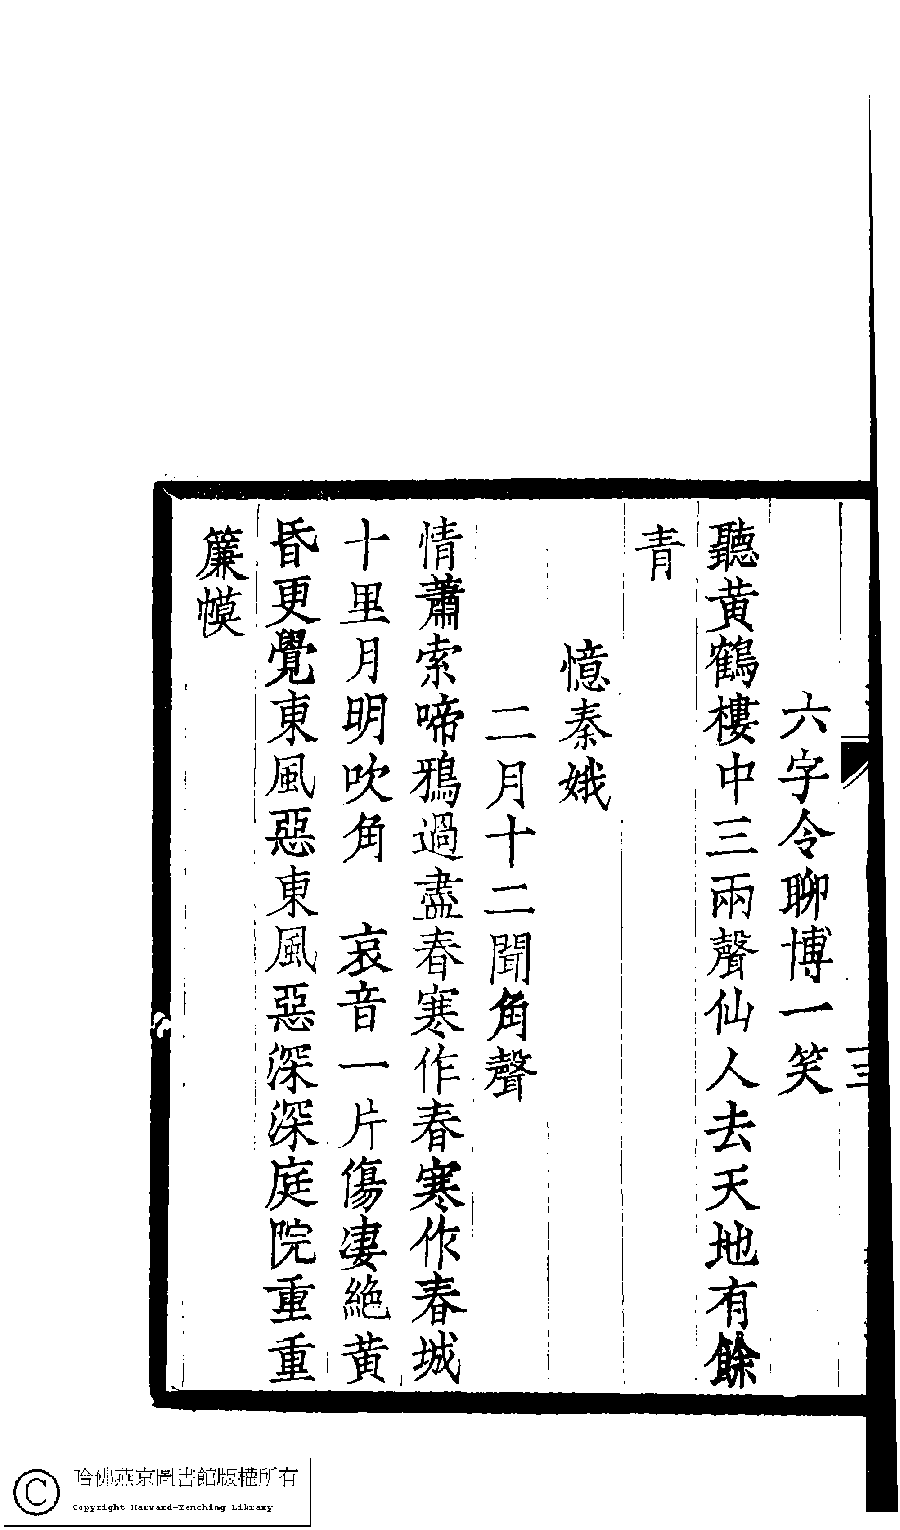 六字令聊博一笑
聽黄鶴樓中三兩聲仙人去天地有餘
青
憶秦娥
二月十二聞角聲
情蕭索啼鴉過盡春寒作春寒作春城
十里月明吹角　哀音一片傷凄絶黄
昏更覺東風惡東風惡深深庭院重重
簾幙
三
哈佛燕京圖書館版權所有
Copyright Harvard-Yenching Library